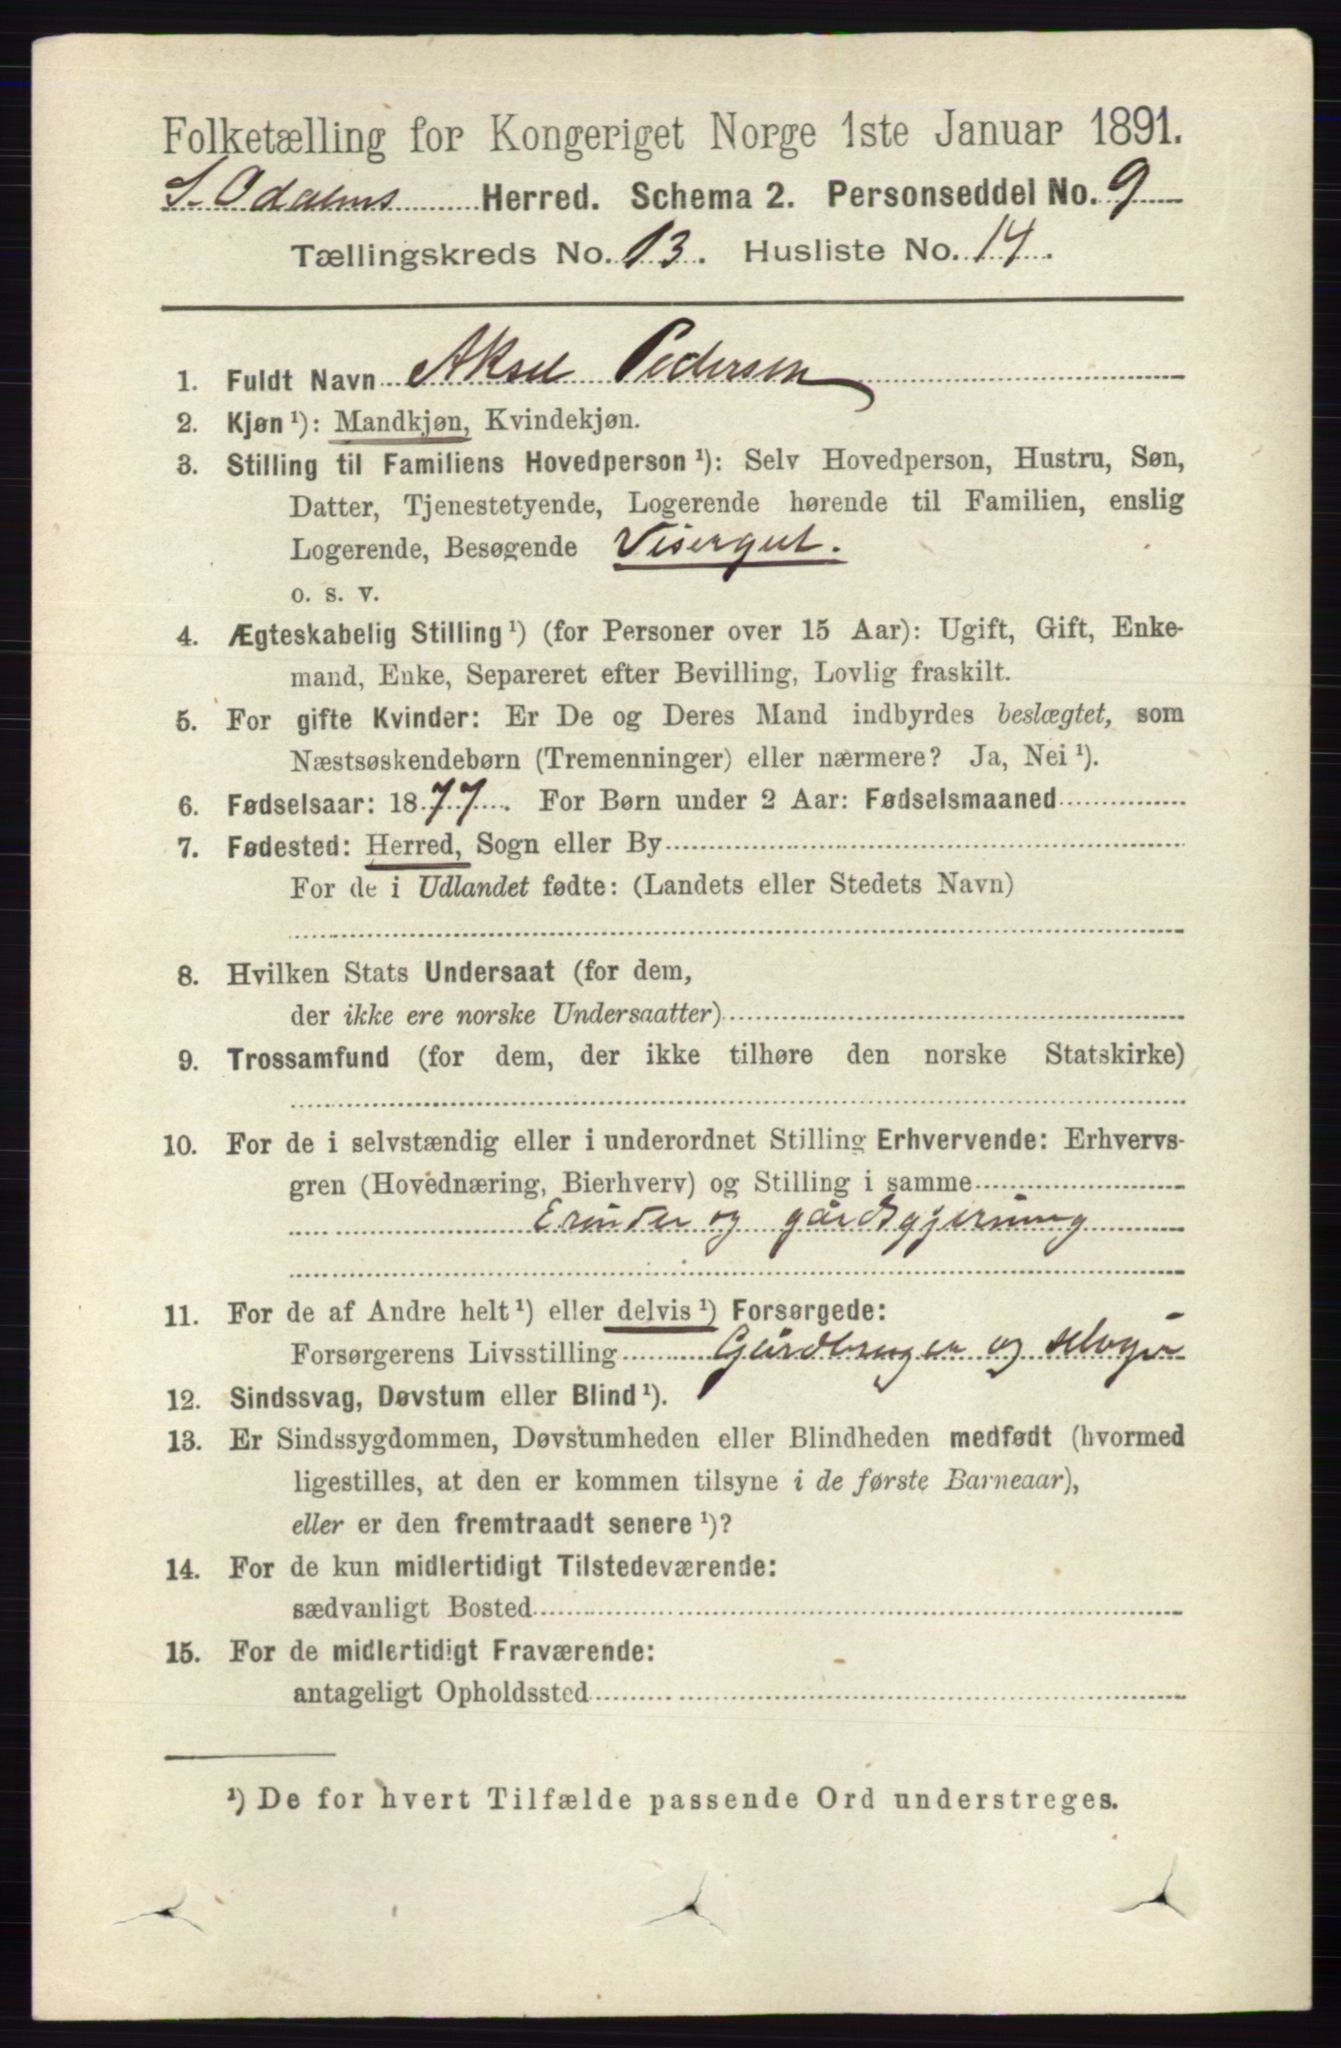 Folketælling for Kongeriget Norge 1ste Januar 1891.
S. Odalens Herred. Schema 2. Personseddel No. 9
Tællingskreds No. 13. Husliste No. 14.
1. Fuldt Navn Aksel Pedersen
2. Kjøn ¹): Mandkjøn, Kvindekjøn.
3. Stilling til Familiens Hovedperson ¹): Selv Hovedperson, Hustru, Søn,
Datter, Tjenestetyende, Logerende hørende til Familien, enslig
Logerende, Besøgende Visergut.
o. s. v.
4. Ægteskabelig Stilling ¹) (for Personer over 15 Aar): Ugift, Gift, Enke-
mand, Enke, Separeret efter Bevilling, Lovlig fraskilt.
5. For gifte Kvinder: Er De og Deres Mand indbyrdes beslægtet, som
Næstsøskendebørn (Tremenninger) eller nærmere? Ja, Nei ¹).
6. Fødselsaar: 1877. For Børn under 2 Aar: Fødselsmaaned
7. Fødested: Herred, Sogn eller By
For de i Udlandet fødte: (Landets eller Stedets Navn)
8. Hvilken Stats Undersaat (for dem,
der ikke ere norske Undersaatter)
9. Trossamfund (for dem, der ikke tilhøre den norske Statskirke)
10. For de i selvstændig eller i underordnet Stilling Erhvervende: Erhvervs-
gren (Hovednæring, Bierhverv) og Stilling i samme
Erinder og gårdsgjerning
11. For de af Andre helt ¹) eller delvis ¹) Forsørgede:
Forsørgerens Livsstilling Gårdbruger og selveier
12. Sindssvag, Døvstum eller Blind ¹).
13. Er Sindssygdommen, Døvstumheden eller Blindheden medfødt (hvormed
ligestilles, at den er kommen tilsyne i de første Barneaar),
eller er den fremtraadt senere ¹)?
14. For de kun midlertidigt Tilstedeværende:
sædvanligt Bosted
15. For de midlertidigt Fraværende:
antageligt Opholdssted
¹) De for hvert Tilfælde passende Ord understreges.